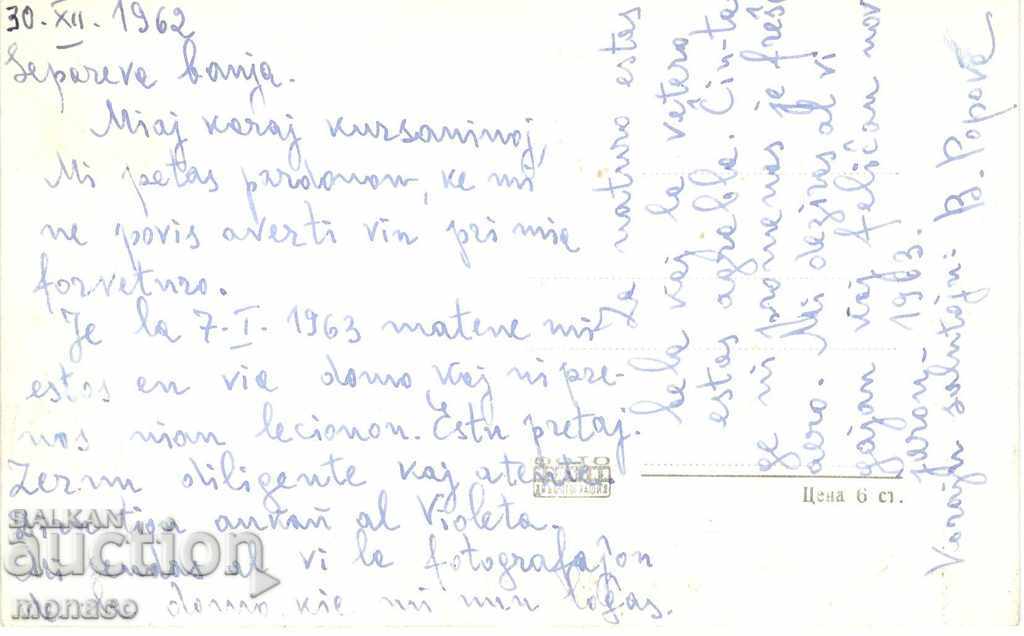 30.XII.1962
Separeva banja.
Miaj karaj kursaninoj,
Mi petas pardonon, ke mi
ne povis averti vin pri mia
forveturo.
Je la 7-I-1963 matene mi
estos en via domo kaj ni pre-
nos nian lecionon. Estu pretaj.
Lernu diligente kaj atentu.
ankaŭ al Violeta.
Mi al vi la fotografaĵon
de la domo, kie mi nun loĝas.
La naturo estas
bela kaj la vetero
estas agrabla. Ĉiu-ta-
ge ni promenas je freŝa
aero. Mi deziras al vi
gajan kaj feliĉan novan
jaron 1963.
Varajn salutojn: B. Popova
ФОТО
Цена 6 ст.
BALKAN
auction
monaso